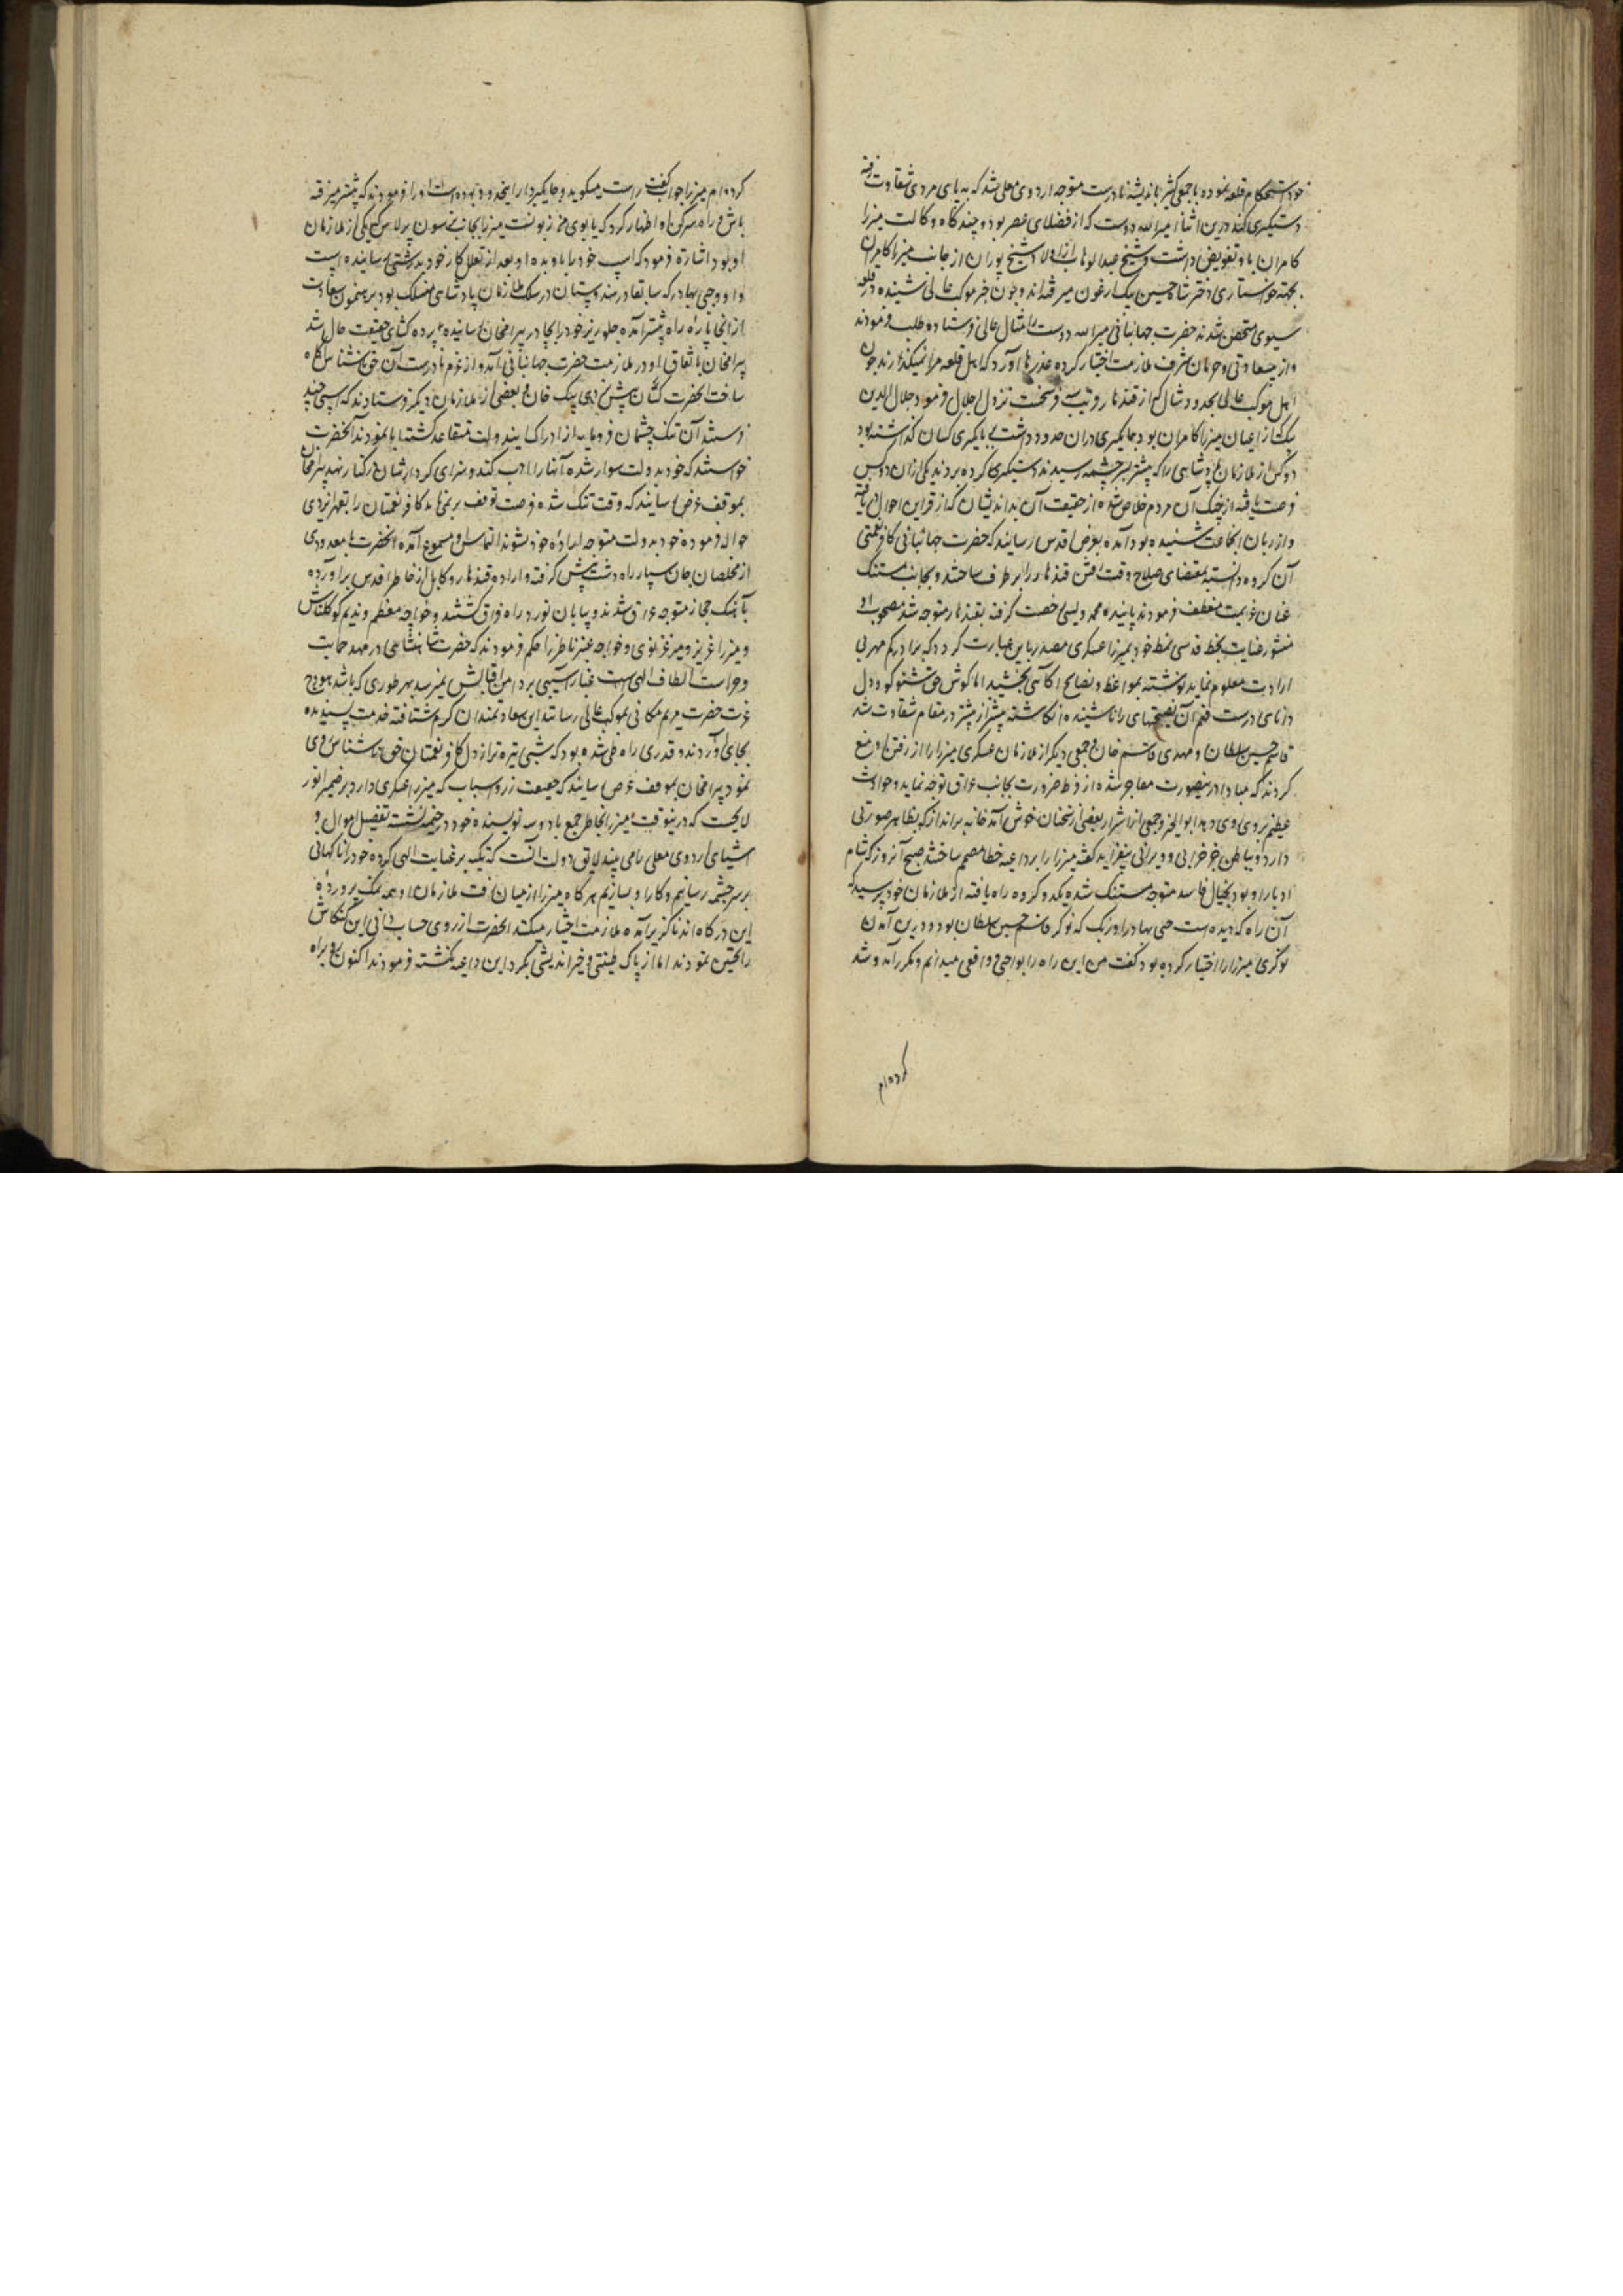 خود استحکام قلعه نموده با جمعی کثیر باندیشه نادرست متوجه اردوی معلی شد که به پای مردی شقاوت رفته
دستگیری کند درین اثنا میر الله دوست که از فضلای عصر بود و چند گاه وکالت میرزا
کامران باو تفویض داشت و شیخ عبدالوهاب از اولاد شیخ پوران از جانب میرزا کامران
بجهة خواستاری دختر شاه حسین بیک ارغون میرفتند و چون خبر موکب عالی شنیده در قلعه
سیوی متحصن شدند حضرت جهانبانی میر الله دوست را مثال عالی فرستاده طلب فرمودند
و از بیسعادتی و حرمان شرف ملازمت اختیار کرده عذرها آورد که اهل قلعه مرا نمیگذارند چون
اهل موکب عالی بحدود شال که از قندهار و تیب فرسخست نزول اجلال فرمود جلال الدین
بیک از اعیان میرزا کامران بود جایگیری دران حدود داشت بجایگیری کسان گذاشته بود
دو کس از ملازمان پادشاهی را که پیشتر بر چشمه رسیدند دستگیر کرده بردند یکی ازان دو کس
فرصت یافته از چنگ آن مردم خلاص شده از حقیقت آن بداندیشان که از قراین احوال یافته
و از زبان آنجماعت شنیده بود آمده بعرض اقدس رسانید که حضرت جهانبانی کافرنعمتی
آن گروه دانسته بمقتضای صلاح وقت رفتن قندهار را برطرف ساختند و بجانب مستنگ
عنان عزیمت منعطف فرمودند پاینده محمد ویسی رخصت گرفته بقندهار متوجه شد مصحوب او
منشور عنایت بخط قدسی نمط خود بمیرزا عسکری مصدر باین عبارت کرد که برادر کم مهر بی
ارادت معلوم نماید نوشته بمواعظ و نصایح آگاهی بخشید اما گوش حق شنو کو و دل
دانای درست فهم آن نصیحتهای را ناشنیده انگاشته بیشتر از پیشتر در مقام شقاوت شد
قاسم حسین سلطان و مهدی قاسم خان و جمعی دیگر از ملازمان عسکری میرزا را از رفتن منع
کردند که مبادا درینصورت معاجر شده از فرط ضرورت بجانب عراق توجه نماید و حوادث
عظیم روی دهد ابوالخیر و جمعی از اشرار بعضی از سخنان خوش آمد خانه برانداز که بظاهر صورتی
دارد و بباطن جز خرابی و ویرانی نیفزاید گفته میرزا را بر داعیه خطا مصمم ساختند صبح آنروز که شام
ادبار او بود بخیال فاسد متوجه مستنگ شد یک دو کروه راه یافته از ملازمان خود پرسید که
آن راه که دیده است حی بهادر اوزبک که نوکر قاسم حسین سلطان بود و درین آمدن
نوکری میرزا را اختیار کرده بود گفت من این راه را بواجبی و واقعی میدانم و مکرر آمد و شد
کرده‌ام
کرده‌ام میرزا جواب گفت راست میگوید و جایگیردار اینحدود بوده است او را فرمودند که پیشتر میرفته
باش و راه سر کن او اظهار کرد که یابوی من زبونست میرزا بجانب ترسون برلاس که یکی از ملازمان
او بود اشارة فرمود که اسپ خود را باو بده او بعد از تعلل کار خود بدرشتی رسانیده اسپ
داد و حی بهادر که سابقا در هندوستان در سلک ملازمان پادشاهی منسلک بود برهنمون سعادت
از آنجا پاره راه پیشتر آمده جلوریز خود را بجا در بیرامخان رسانیده پرده کشای حقیقت حال شد
بیرامخان باتفاق او در ملازمت حضرت جهانبانی آمد و از عزم نادرست آن حق ناشناس آگاه
ساخت آنحضرت کسان پیش تردی بیک خان و بعضی از ملازمان دیگر فرستادند که اسپی چند
فرستد آن تنگ چشمان فرومایه از ادراک این دولت متقاعد گشته ابا نمودند آنحضرت
خواستند که خود بدولت سوار شده آنها را ادب کنند و سزای کردار ایشان در کنار نهند بیرامخان
بموقف عرض رسانید که وقت تنگ شده فرصت توقف برنمی تابد کافر نعمتان را بقهر ایزدی
حواله فرموده خود بدولت متوجه اراده خود شوند التماس او مسموع آمده آنحضرت با معدودی
از مخلصان جان سپار راه دشت پیش گرفته و اراده قندهار و کابل از خاطر اقدس برآورده
بآهنگ حجاز متوجه عراق شدند و بیابان نورد راه فراق گشتند و خواجه معظم و ندیم کوکلتاش
و میرزا عزیز و میر غزنوی و خواجه عنبر ناظر را حکم فرمودند که حضرت شاهنشاهی در مهد حمایت
و حراست الطاف الهی است غبار آسیبی بر دامن اقبالش نمیرسد بهر طوری که باشد هودج
عزت حضرت مریم مکانی بموکب عالی رسانند این سعادتمندان گرم شتافته خدمت پسندیده
بجای آوردند و قدری راه طی شده بود که شبی تیره تر از دل کافر نعمتان حق ناشناس روی
نمود بیرامخان بموقف عرض رسانید که جمعیت زر و اسباب که میرزا عسکری دارد بر ضمیر انور
لایحست که درینوقت میرزا بخاطر جمع با دو سه نویسنده خود در خیمه نشسته تفصیل اموال و
اشیای اردوی معلی را می بیند لایق دولت آنست که تکیه بر عنایت الهی کرده خود را ناگهانی
بر سر خیمه رسانیم و کار او بسازیم هر گاه میرزا از میان رفت ملازمان او همه نمک پرورده
این درگاه اند ناگزیر آمده ملازمت اختیار میکنند آنحضرت از روی حساب دانی این کنکاش
را تحسین نمودند اما از پاک طینتی و خیر اندیشی بگرد این داعیه نگشته فرمودند اکنون رو براه